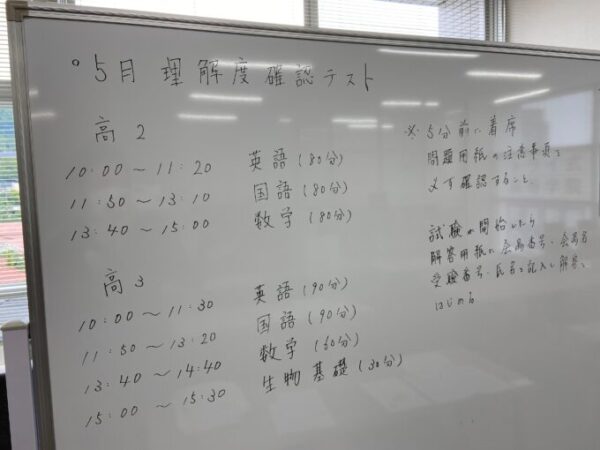 ° 5月 理解度確認テスト
高2
10:00～11:20 英語(80分)
11:50～13:10 国語(80分)
13:40～15:00 数学(80分)
高3
10:00～11:30 英語(90分)
11:50～13:20 国語(90分)
13:40～14:40 数学(60分)
15:00～15:30 生物基礎(30分)
※ 5分前に着席
問題用紙の注意事項を
必ず確認すること。
試験が開始したら
解答用紙に会場番号、会場名
受験番号、氏名を記入し解答を
はじめる